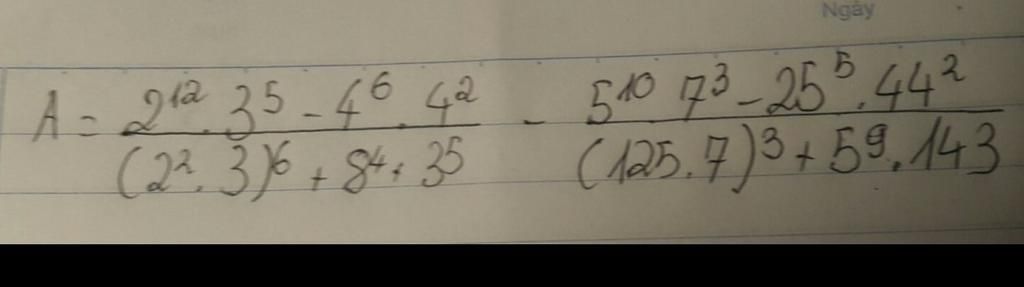 Ngày
A = \frac{2^{12}.3^5 - 4^6.4^2}{(2^2.3)^6 + 8^4.3^5} - \frac{5^{10}.7^3 - 25^5.44^2}{(125.7)^3 + 5^9.143}